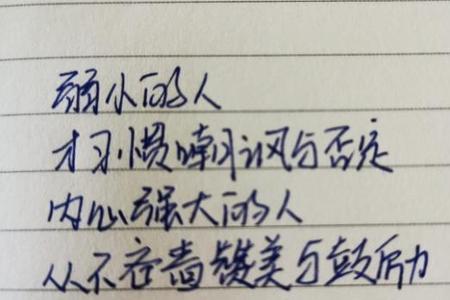 弱小的人
才习惯嘲讽与否定
内心强大的人
从不吝啬赞美与鼓励